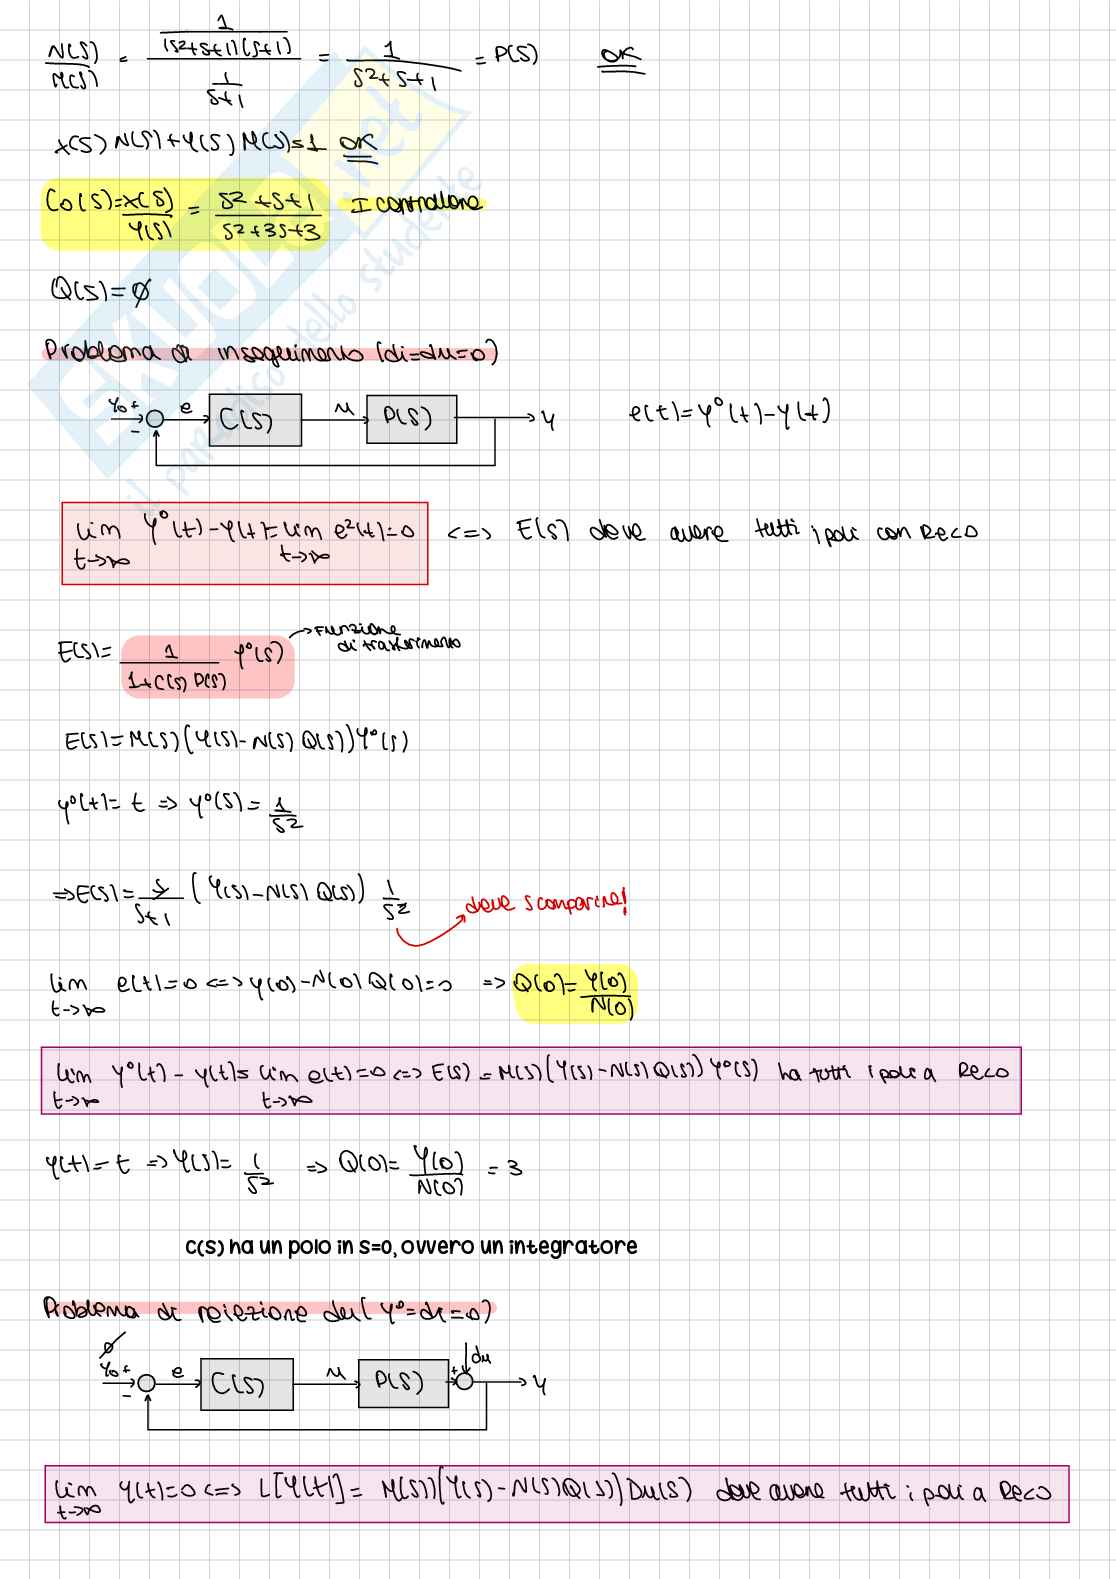 N(S)/M(S) = (1/((s²+s+1)(s+1)))/(1/(s+1)) = 1/(s²+s+1) = P(S) OK
X(S) N(S)+Y(S) M(S)=1 OK
C0(S)=X(S)/Y(S) = (s²+s+1)/(s²+3s+3) I controllore
Q(S)=∅
Problema di inseguimento (di=du=0)
Y0 + - e C(S) u P(S) y e(t)=Y°(t)-Y(t)
lim t→∞ Y°(t)-Y(t)=lim t→∞ e²(t)=0 <=> E(S) deve avere tutti i poli con Re<0
E(S)= 1/(1+C(S) P(S)) Y°(S) → Funzione
di trasferimento
E(S)=M(S)(Y(S)-N(S) Q(S))Y°(S)
y°(t)= t => y°(S)= 1/s²
=>E(S)= s/(s+1) (Y(S)-N(S) Q(S)) 1/s² deve scomparire!
lim t→∞ e(t)=0 <=> Y(0)-N(0) Q(0)=0 => Q(0)=Y(0)/N(0)
lim t→∞ Y°(t) - Y(t)= lim t→∞ e(t)=0 <=> E(S) = M(S)(Y(S)-N(S)Q(S)) Y°(S) ha tutti i poli a Re<0
Y(t)=t => Y(S)= 1/s² => Q(0)= Y(0)/N(0) = 3
C(S) ha un polo in s=0, ovvero un integratore
Problema di reiezione du( Y°=di=0)
∅ Y0 + - e C(S) u P(S) + du y
lim t→∞ Y(t)=0 <=> L[Y(t)] = M(S)(Y(S)-N(S)Q(S))Du(S) deve avere tutti i poli a Re<0
SKUOLA.net
il paradiso dello studente